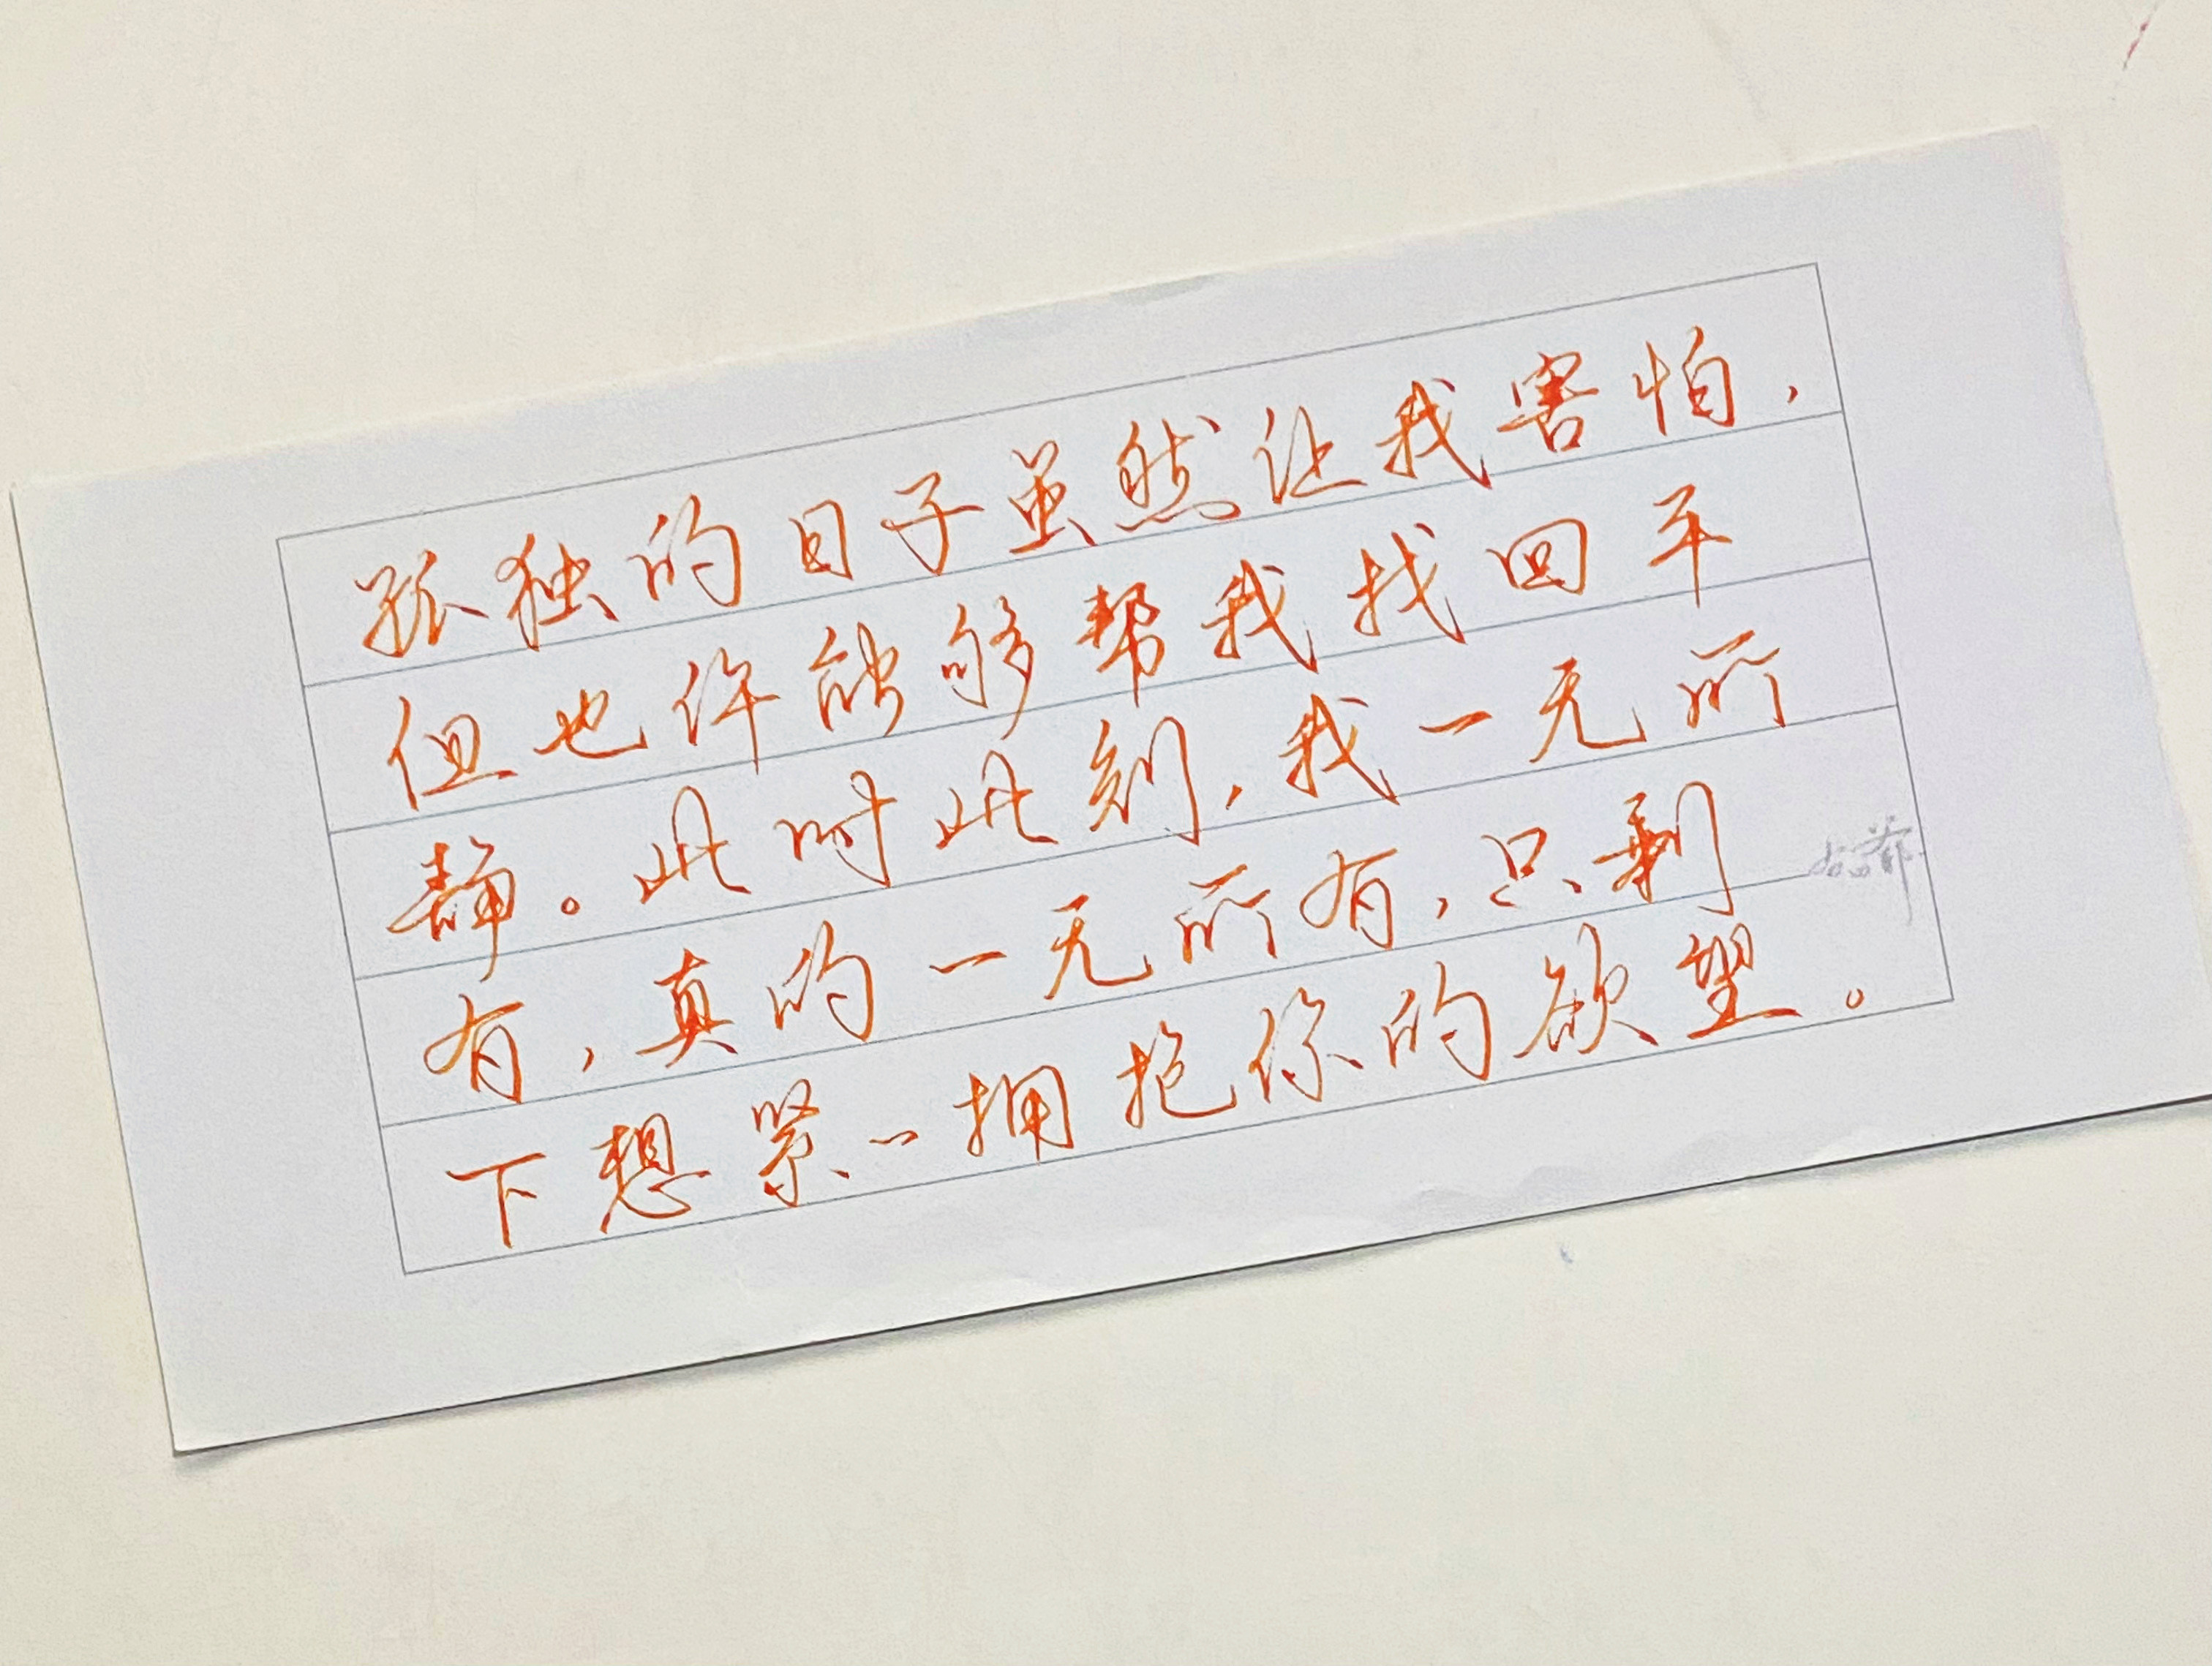 孤独的日子虽然让我害怕，
但也许能够帮我找回平
静。此时此刻，我一无所
有，真的一无所有，只剩
下想紧紧拥抱你的欲望。